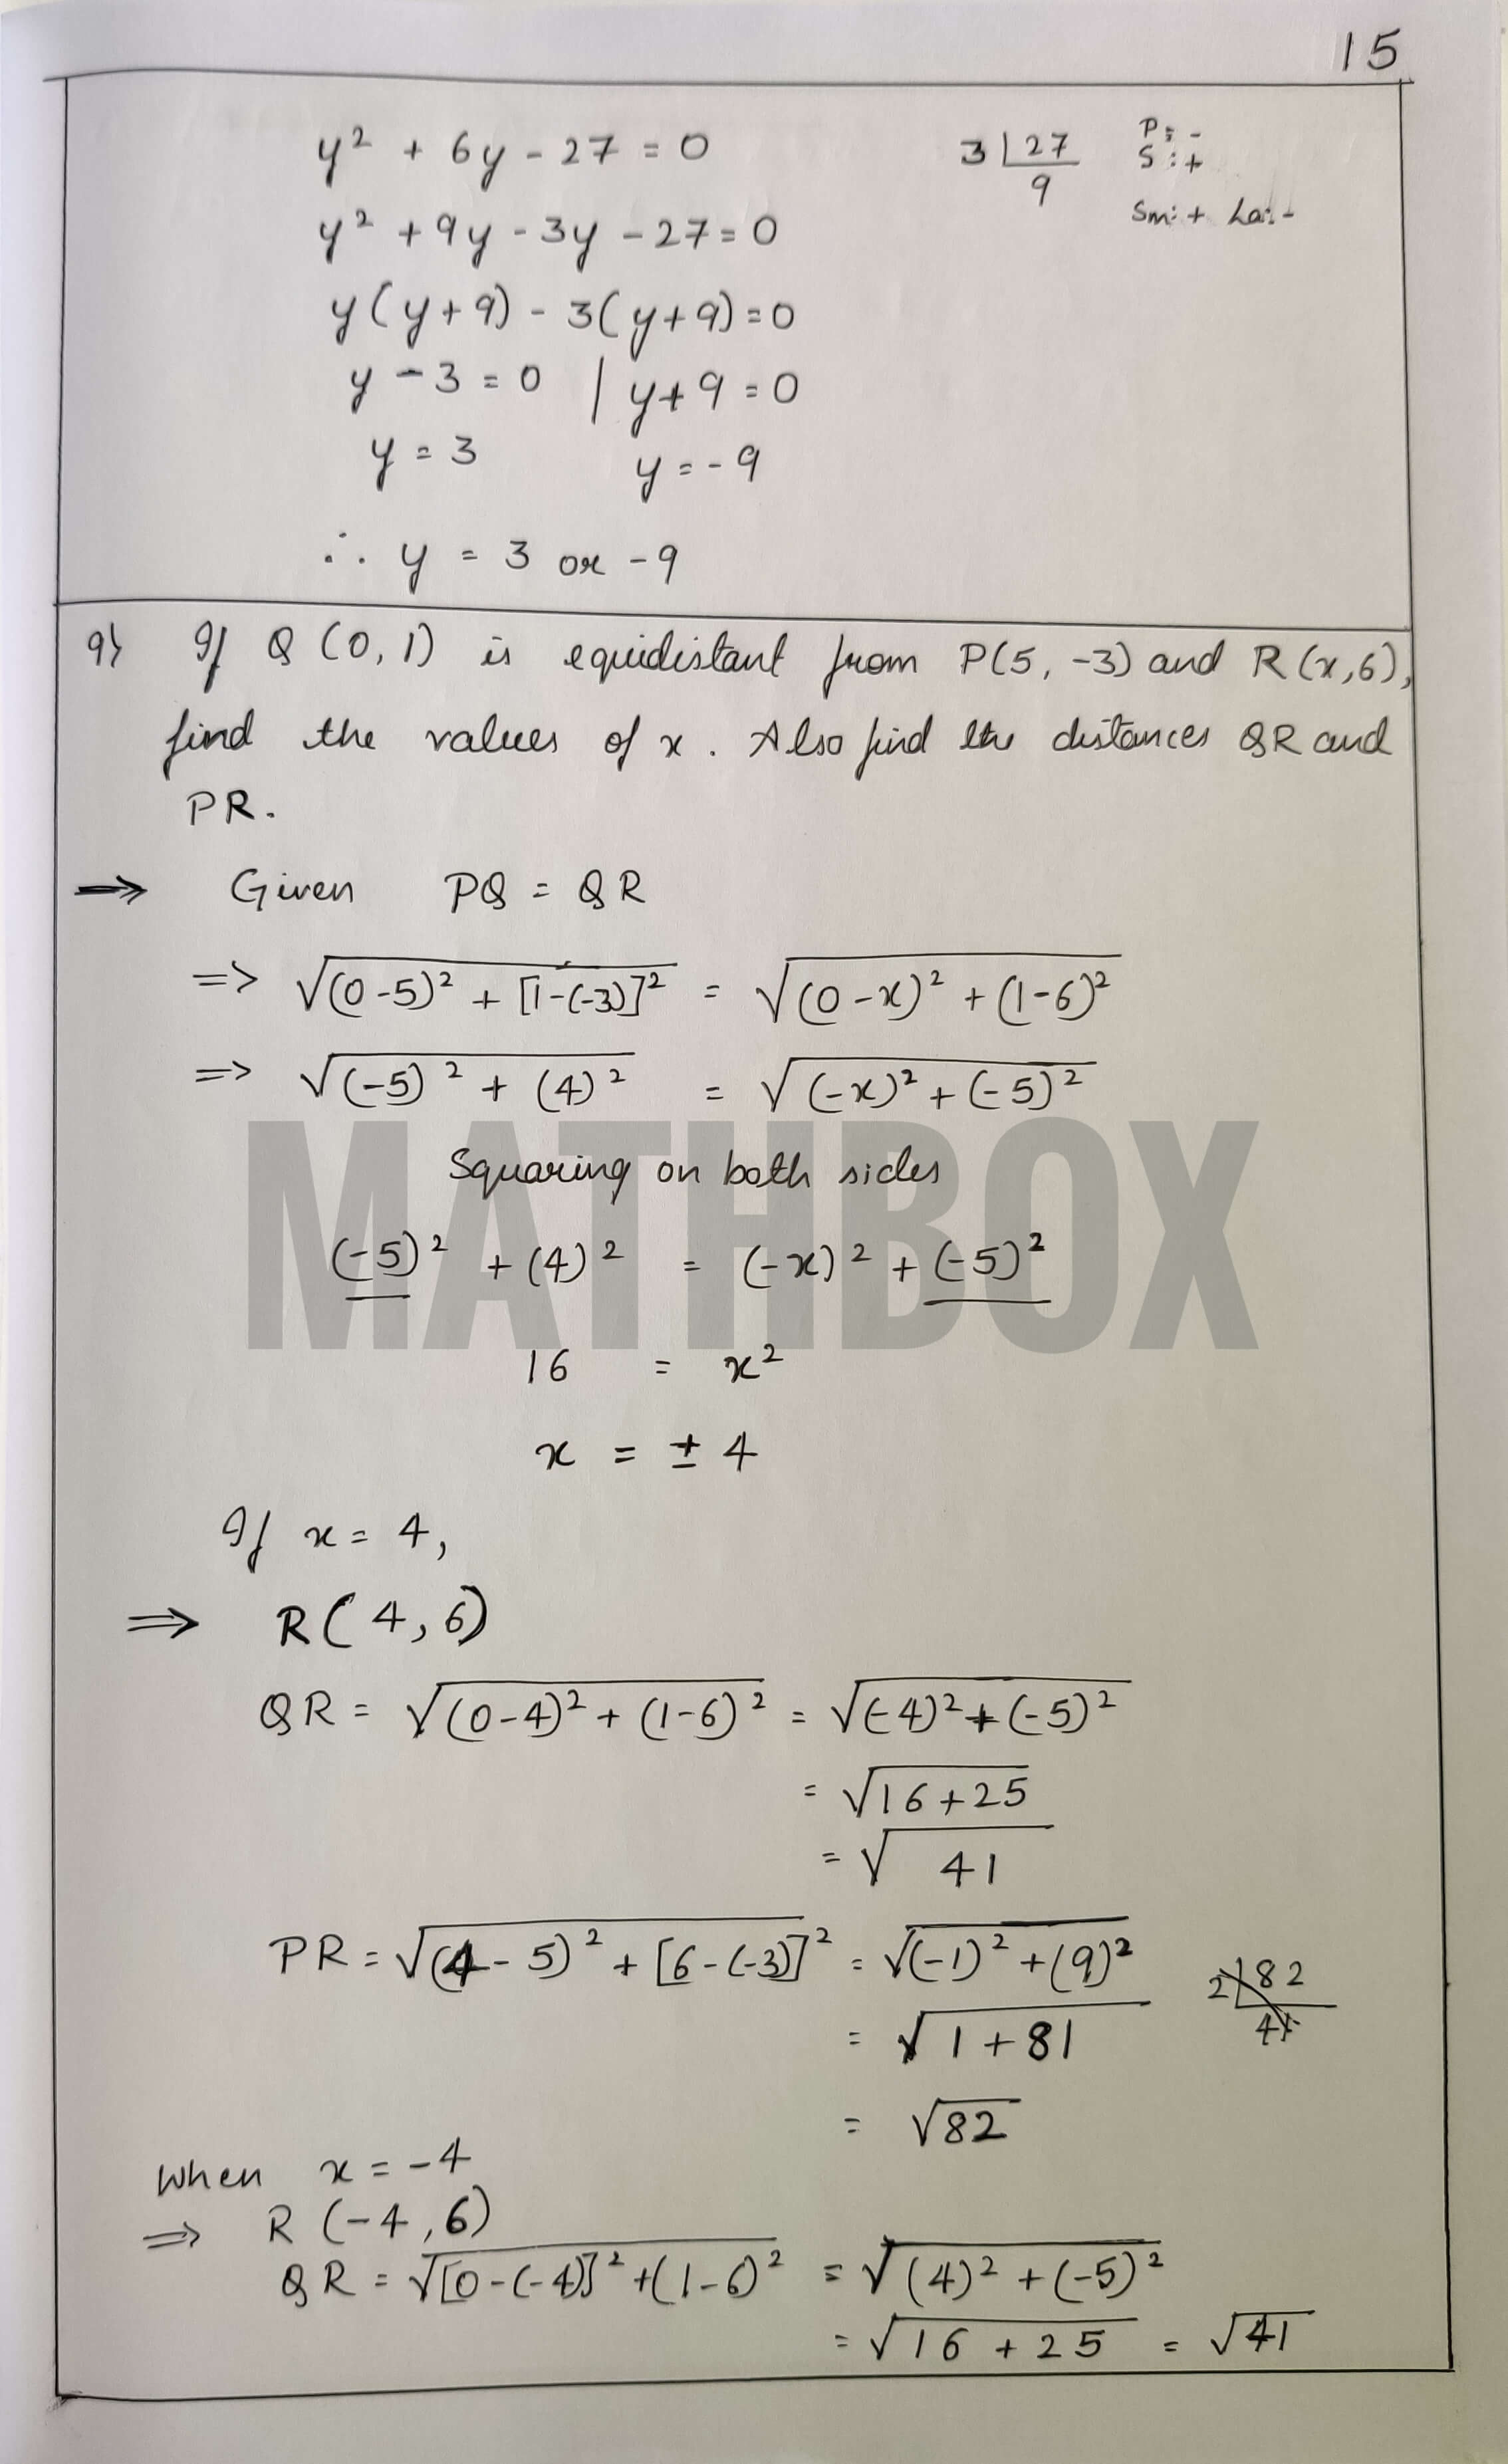 15
y² + 6y - 27 = 0
3 | 27
9
P: -
S: +
Sm: + La: -
y² + 9y - 3y - 27 = 0
y(y+9) - 3(y+9) = 0
y - 3 = 0 | y + 9 = 0
y = 3 y = -9
∴ y = 3 or -9
9) If Q (0, 1) is equidistant from P(5, -3) and R (x,6),
find the values of x. Also find the distances QR and
PR.
→ Given PQ = QR
=> √(0-5)² + [1-(-3)]² = √(0-x)² + (1-6)²
=> √(-5)² + (4)² = √(-x)² + (-5)²
Squaring on both sides
(-5)² + (4)² = (-x)² + (-5)²
MATHBOX
16 = x²
x = ± 4
If x = 4,
⇒ R(4,6)
QR = √(0-4)² + (1-6)² = √(-4)² + (-5)²
= √16+25
= √41
PR = √(4-5)² + [6-(-3)]² = √(-1)² + (9)²
2 | 82
41
= √1+81
= √82
When x = -4
⇒ R (-4,6)
QR = √[0-(-4)]² + (1-6)² = √(4)² + (-5)²
= √16 + 25 = √41